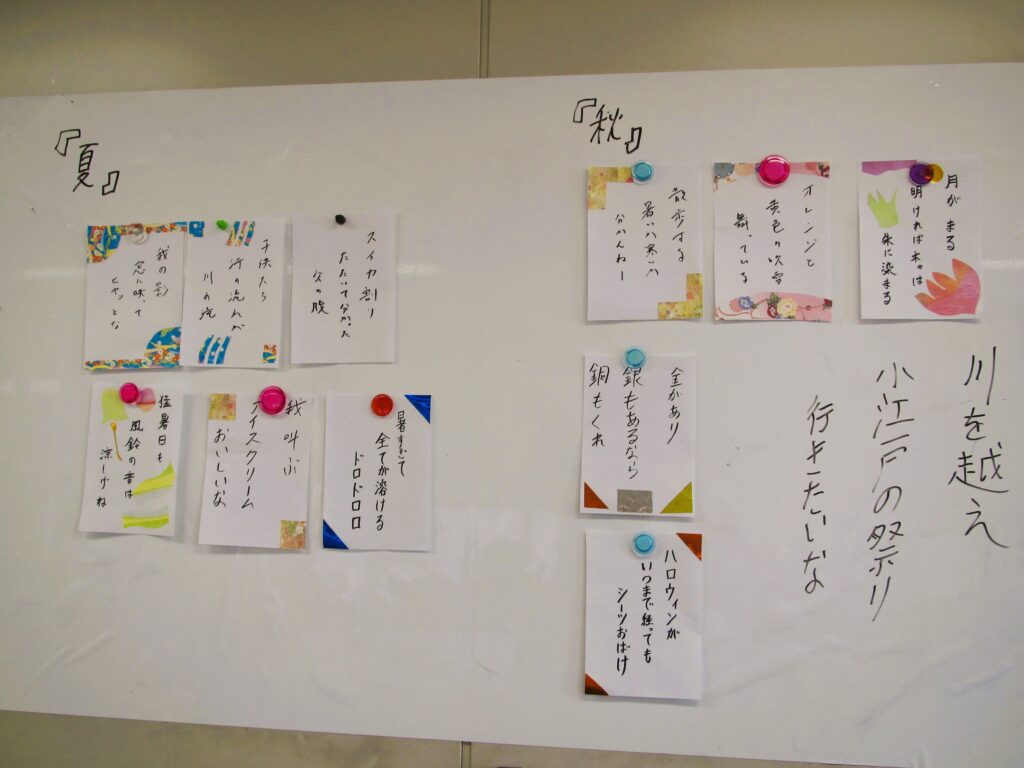 『夏』
スイカ割り
たたいて分かった
父の腹
子供たち
汗の流れが
川の
我の影
窓に映って
ヒヤッとな
暑すぎて
全てが溶ける
ドロドロロ
我叫ぶ
アイスクリーム
おいしいな
猛暑日も
風鈴の音は
涼しげね
『秋』
月がまる
明ければ木々は
朱に染まる
オレンジと
黄色の吹雪
舞っている
散歩する
暑い?寒い?
分かんねー
金があり
銀もあるなら
銅もくれ
ハロウィンが
いつまで経っても
シーツおばけ
川を越え
小江戸の祭り
行きたいな